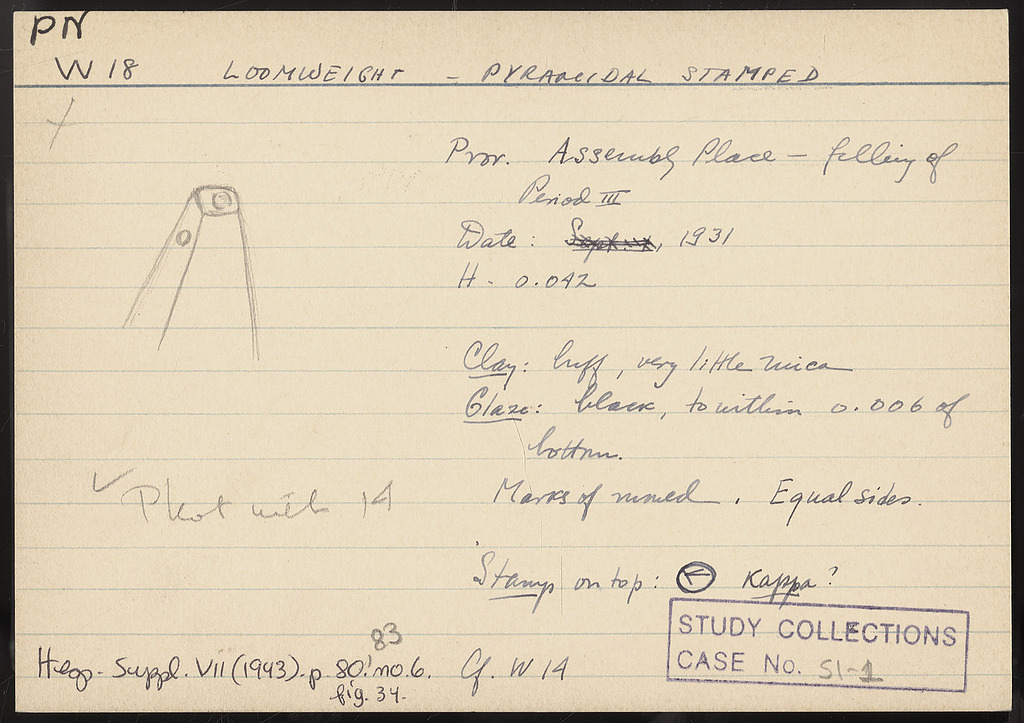 PN
W 18 LOOMWEIGHT - PYRAMIDAL STAMPED
Prov. Assembly Place - filling of
Period III
Date: Sept. 1931
H - 0.042
Clay: buff, very little mica
Glaze: black, to within 0.006 of
bottom.
Marks of Equal sides.
Phot with 14
Stamp on top: K kappa?
STUDY COLLECTIONS
CASE No. SI-1
83
Hesp. Suppl. VII (1943). p. 80! no. 6. Cf. W 14
fig. 34.